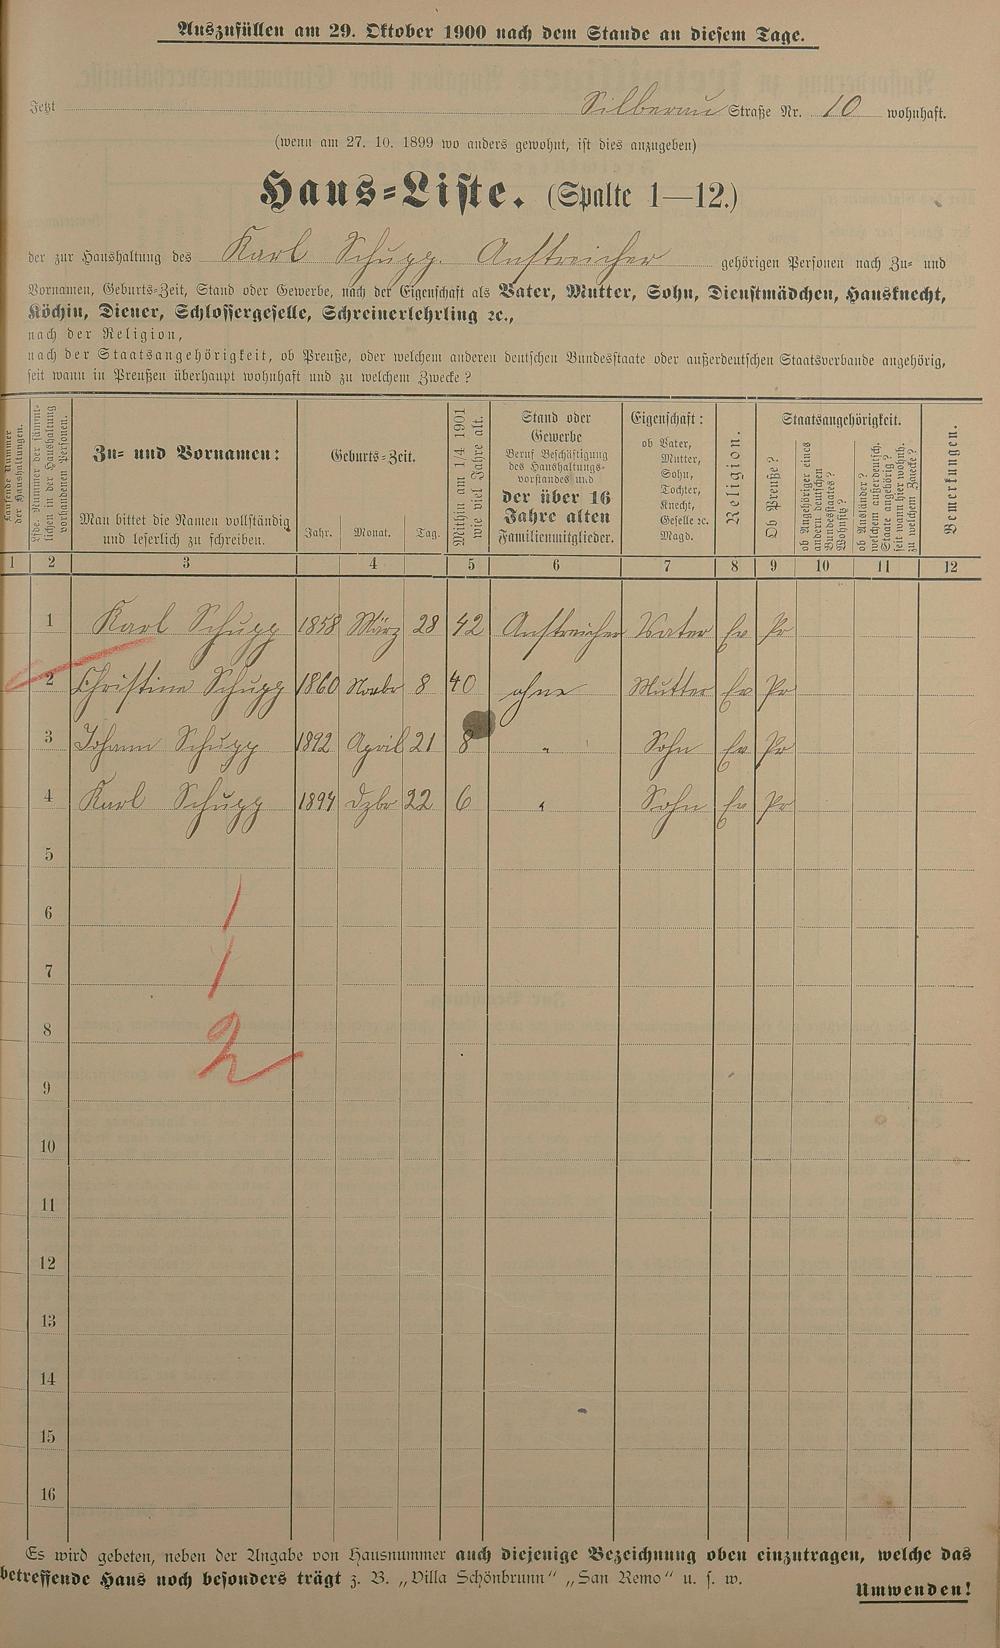 Auszufüllen am 29. Oktober 1900 nach dem Stande an diesem Tage.
Jetzt Silberau Straße Nr. 10 wohnhaft.
(wenn am 27. 10. 1899 wo anders gewohnt, ist dies anzugeben)
Haus-Liste. (Spalte 1—12.)
der zur Haushaltung des Karl Schupp. Anstreicher gehörigen Personen nach Zu- und
Vornamen, Geburts-Zeit, Stand oder Gewerbe, nach der Eigenschaft als Vater, Mutter, Sohn, Dienstmädchen, Hausknecht,
Köchin, Diener, Schlossergeselle, Schreinerlehrling ꝛc.,
nach der Religion,
nach der Staatsangehörigkeit, ob Preuße, oder welchem anderen deutschen Bundesstaate oder außerdeutschen Staatsverbande angehörig,
seit wann in Preußen überhaupt wohnhaft und zu welchem Zwecke?
Laufende Nummer
der Haushaltungen.
Lfde. Nummer der sämmt-
lichen in der Haushaltung
vorhandenen Personen.
Zu- und Vornamen:
Man bittet die Namen vollständig
und leserlich zu schreiben.
Geburts-Zeit.
Jahr. Monat. Tag.
Mithin am 1/4 1901
wie viel Jahre alt.
Stand oder
Gewerbe
Beruf Beschäftigung
des Haushaltungs-
vorstandes und
der über 16
Jahre alten
Familienmitglieder.
Eigenschaft:
ob Vater,
Mutter,
Sohn,
Tochter,
Knecht,
Geselle ꝛc.
Magd.
Religion.
Staatsangehörigkeit.
Ob Preuße?
ob Angehöriger eines
andern deutschen
Bundesstaates?
Wohnsitz?
ob Ausländer?
welchem außerdeutsch.
Staate angehörig?
seit wann hier wohnh.
zu welchem Zwecke?
Bemerkungen.
1 2 3 4 5 6 7 8 9 10 11 12
1 Karl Schupp 1858 März 28 42 Anstreicher Vater Ev Pr
2 Christine Schupp 1860 Novbr 8 40 ohne Mutter Ev Pr
3 Johann Schupp 1892 April 21 8 " Sohn Ev Pr
4 Karl Schupp 1894 Dzbr 22 6 " Sohn Ev Pr
5
6 1
7 1
8 2
9
10
11
12
13
14
15
16
Es wird gebeten, neben der Angabe von Hausnummer auch diejenige Bezeichnung oben einzutragen, welche das
betreffende Haus noch besonders trägt z. B. „Villa Schönbrunn“ „San Remo“ u. s. w.
Umwenden!